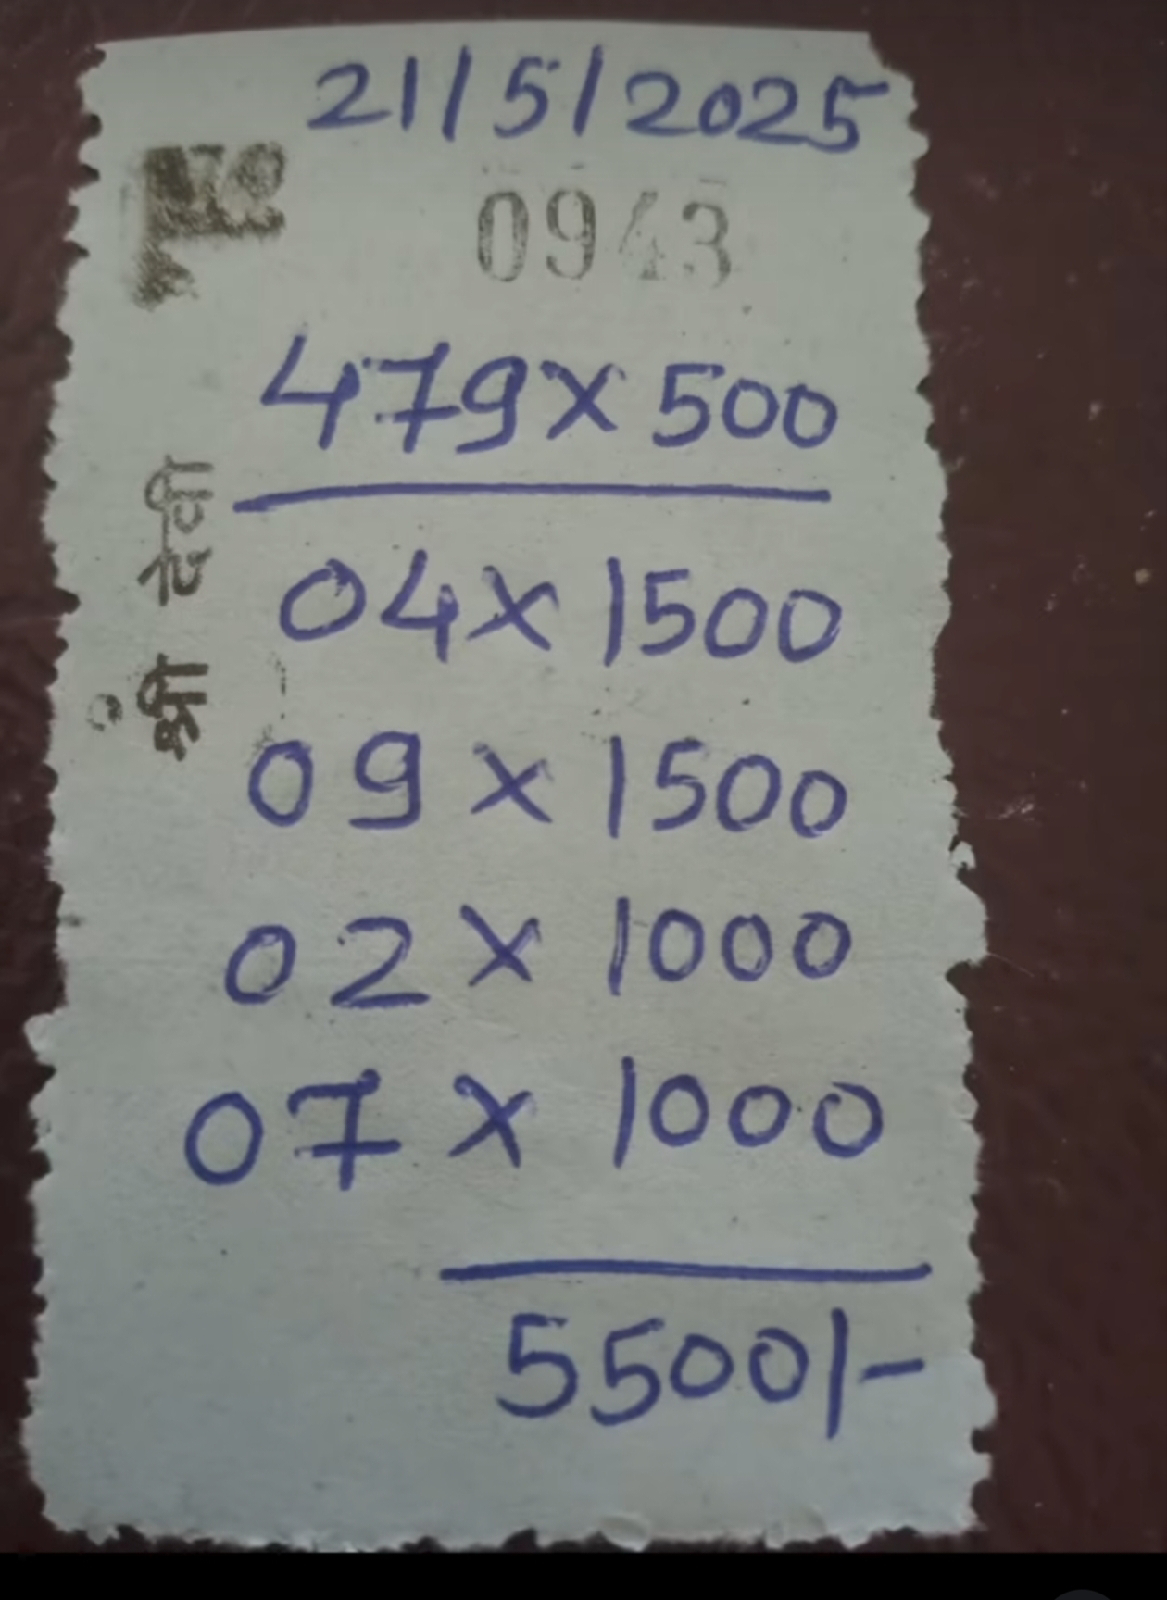 21/5/2025
0943
479x500
04x1500
09x1500
02x1000
07x1000
5500/-
श्री देवी